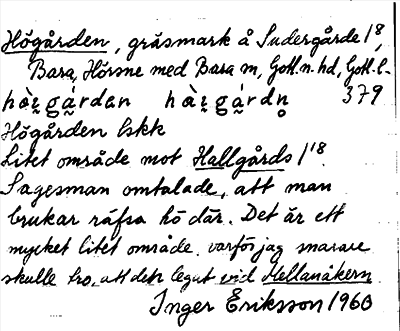 Högården, gräsmark å Sudergårde 1/8,
Bara, Hörsne med Bara sn, Gotl. n. hd, Gotl. l.
hὰ̀i̯gá́rdan hὰ̀i̯gá́rdn̥ 379
Högården lskk
Litet område mot Hallgårds 1/18.
Sagesman omtalade, att man
brukar räfsa hö där. Det är ett
mycket litet område, varför jag snarare
skulle tro, att det legat vid Hellanåkern.
Inger Eriksson 1960